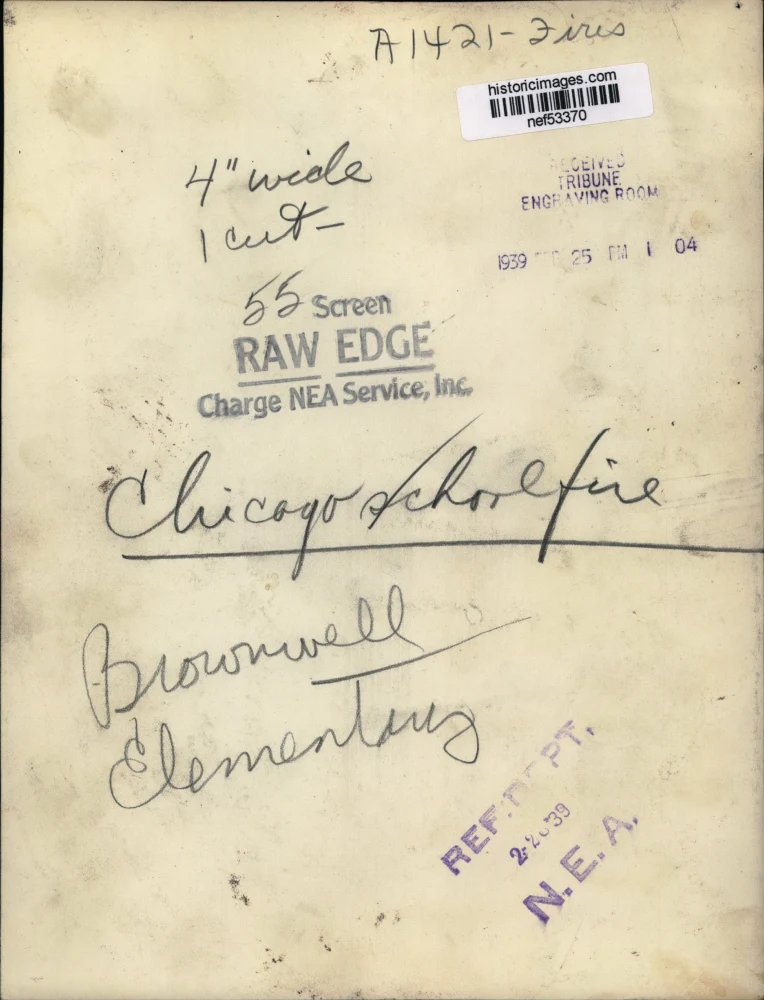 A1421- Fires
historicimages.com
nef53370
4" wide
1 cut-
RECEIVED
TRIBUNE
ENGRAVING ROOM
1939 25 PM 1 04
55 Screen
RAW EDGE
Charge NEA Service, Inc.
Chicago school fire
Brownwell
Elementary
REF. DEPT.
N.E.A.